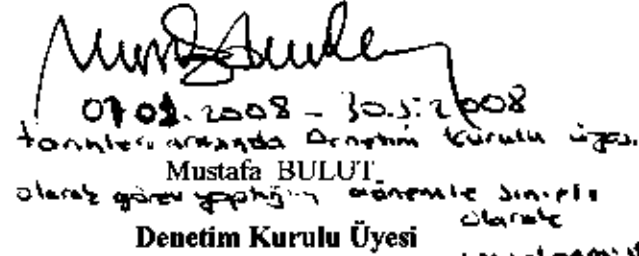 2008 - 30.5.2008
tarihleri arasında Denetim Kurulu üyesi
Mustafa BULUT
olarak görev yaptığım dönemle sınırlı
olarak
Denetim Kurulu Üyesi